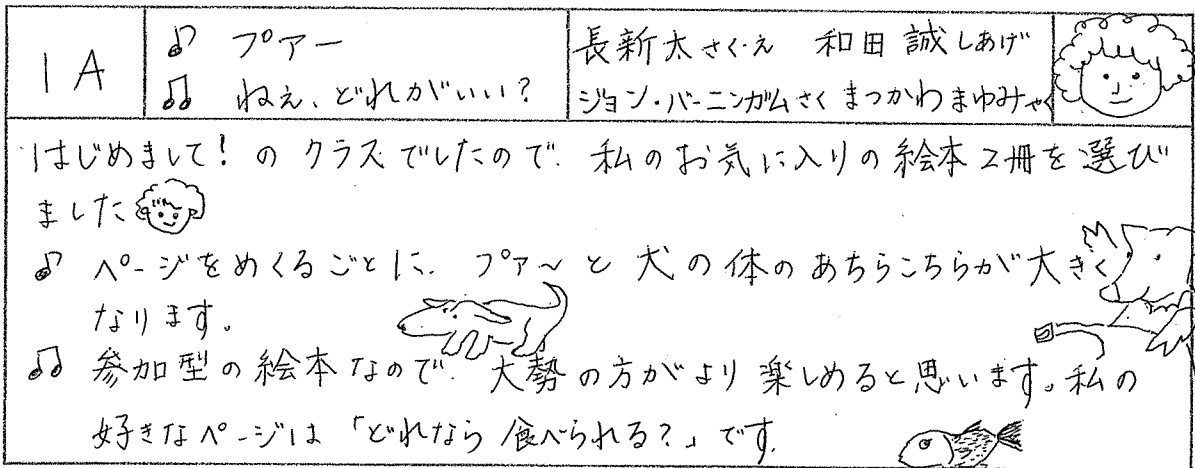 1A
♪ プアー
♫ ねぇ、どれがいい?
長新太さく・え 和田誠しあげ
ジョン・バーニンガムさく まつかわまゆみやく
はじめまして!のクラスでしたので、私のお気に入りの絵本2冊を選び
ました
♪ ページをめくるごとに、プァ〜と犬の体のあちらこちらが大きく
なります。
♫ 参加型の絵本なので、大勢の方がより楽しめると思います。私の
好きなページは「どれなら食べられる?」です。